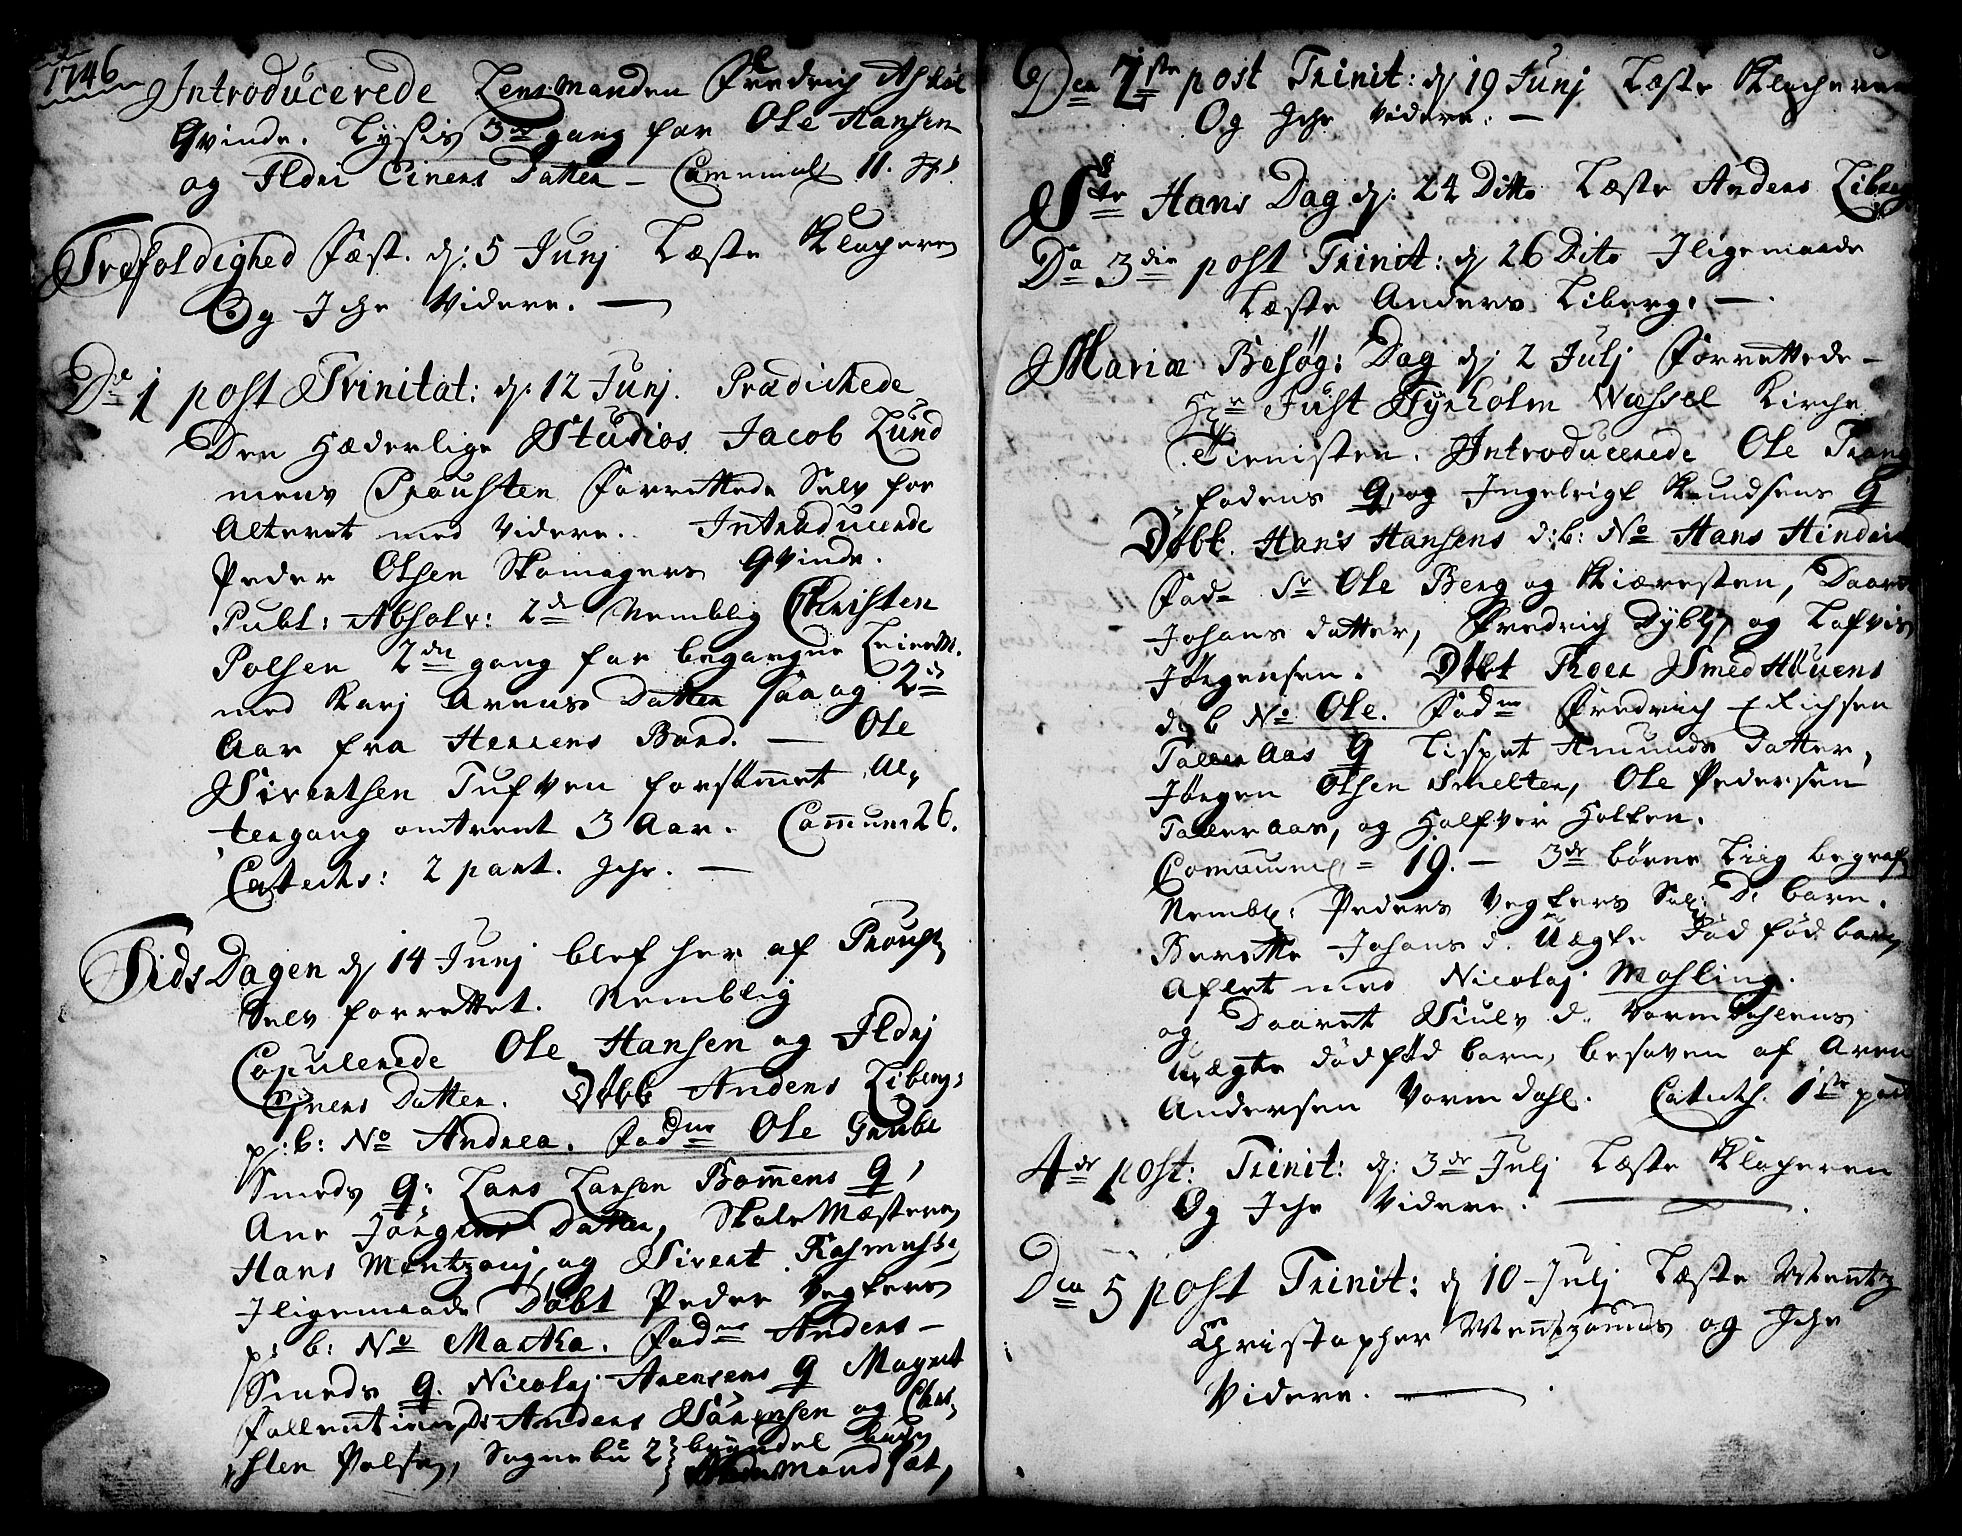 1746
Introducerede Lensmanden Fredrich Ashøl
Qvinde. Lysis 3de gang for Ole Hansen
og Ildri Einers Datter – Communic 11. Jtz
Trefoldighed Fæst. d: 5 Junj Læste Klocheren
Og Iche Videre. —
Da 1 post Trinitat: d: 12 Junj. Prædichede
Den Hæderlige Studios. Jacob Lund
mens Prousten Forrettede Selv for
Alteret med Videre. Introducerede
Peder Olsen Skomagers Qvinde.
Publ: Absolv: 2de Nemblig Christen
Polsen 2den gang for begangne Leierm.
med Karj Arens Datter saa og 2de
Aar fra Herrens Bord. — Ole
Sivertsen Tufven forsømmet Al,
tergang omtrent 3 Aar. Communic 26.
Catechs: 2 part. Iche. —
Tids Dagen d 14 Junj blef her af Proust
Selv forrettet. Nemblig
Copulerede Ole Hansen og Ildrj
Einers Datter. Døbt Anders Libergs
p: b: No Andrea. Fadne Ole Grube
Smeds Q: Lars Larsen Bommens Q,
Ane Jørgens Datter, Skole Mesteren
Hans Mentzonj, og Sivert Rasmusse
Iligemaade Døbt Peder Vegters
p: b: No Martha. Fadne Anders –
Smeds Q. Nicolaj Arensens Q Magret
Follentins D: Anders Sørensen og Chri,
sten Polsen, Sognebu 2
Mand sat,
Den 2den post Trinit: d 19 Junj Læste Klocheren
Og Iche Videre. —
Ste Hans Dag d: 24 Ditto Læste Anders Liberg
Da 3die post Trinit: d 26 Dito Iligemaade
Læste Anders Liberg. —
Mariæ Besøg: Dag d: 2 Julj Forrettede –
Hr Just Fyrholm Wessel Kirche
Tienisten. Introducerede Ole Trang
fodens Q, og Ingebrigt Knudsens Q
Døbt. Hans Hansens d: b: No Hans Hindrich
Fad= Sr Ole Berg og Kiæresten, Daaret
Johans datter, Fredrich Dybly og Lofvis
Jørgensen. Døbt Thoer Smed Houens
d: b No Ole. Fadne Fredrich Erichsen
Talleraas Q Lisbet Amunds datter,
Jørgen Olsen Smelter, Ole Pedersen
Talleraas, og Halfver Holten.
Communic = 19. — 3de børne Liig begrafv
Nembl: Peders Vegters Sal: D: barn.
Berette Johans d. Uægte død fød barn
Aflet med Nicolaj Mohling.
og Daaret Siulv d. Vormdahlens
uægte dødfød barn, besoven af Aren
Andersen Vormdahl. Catech. 1ste part
4de post: Trinit: d: 3de Julj Læste Klocheren
Og Iche Videre. —
Den 5 post Trinit: d 10 Julj Læste Mentz
Christopher Mentzonius og Iche
Videre. —